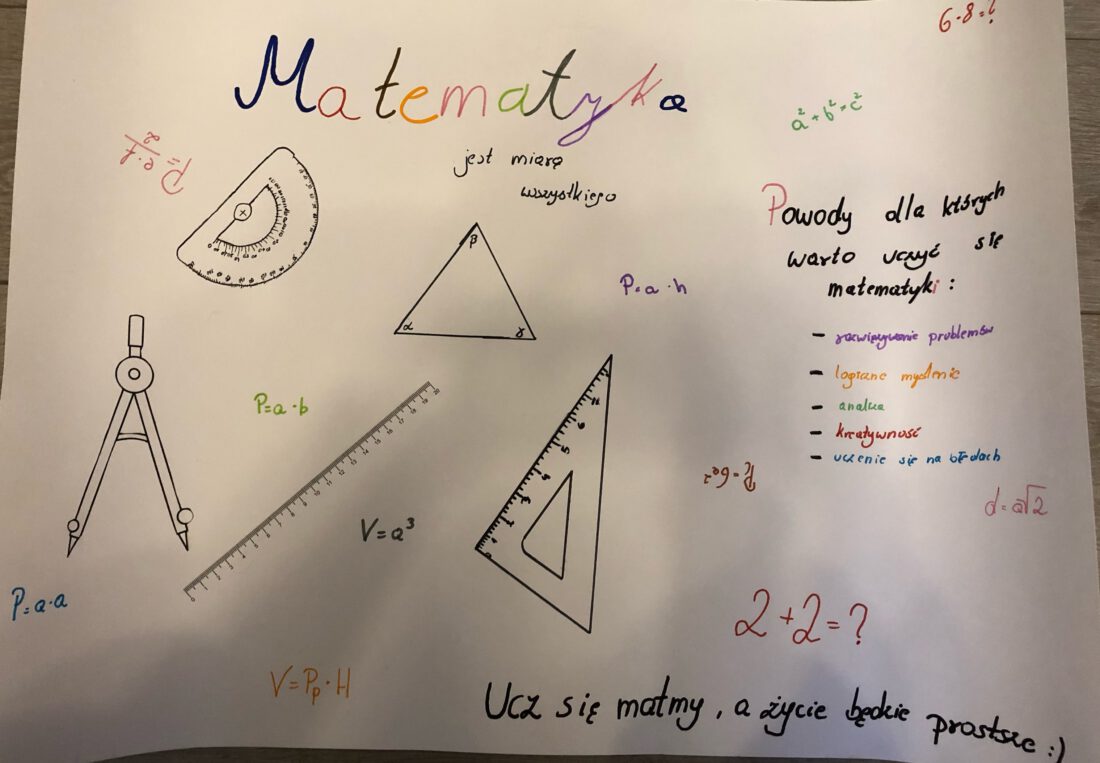 6·8=?
Matematyka
a²+b²=c²
jest miarą
wszystkiego
P=e·f/2
Powody dla których
warto uczyć się
matematyki:
β
α
γ
P=a·h
- rozwiązywanie problemów
- logiczne myślenie
- analiza
- kreatywność
- uczenie się na błędach
P=a·b
V=a³
P=6a²
d=a√2
P=a·a
2+2=?
V=Pp·H
Ucz się matmy, a życie będzie prostsze :)